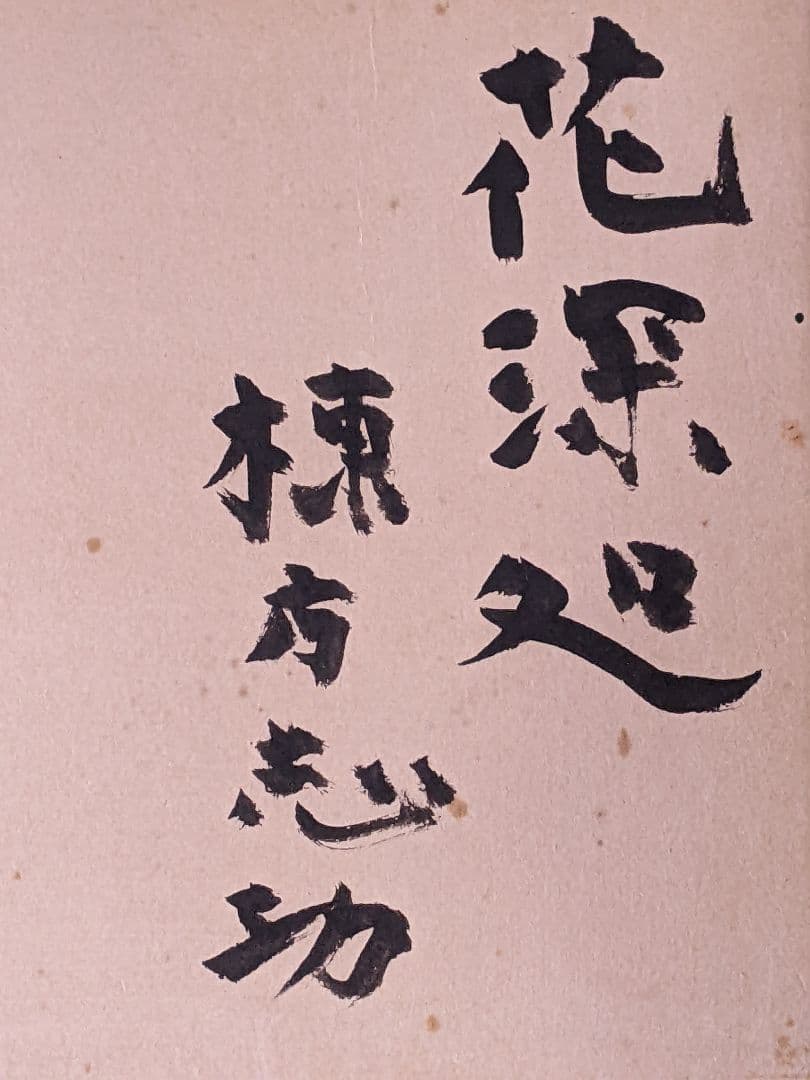 花深処
棟方志功